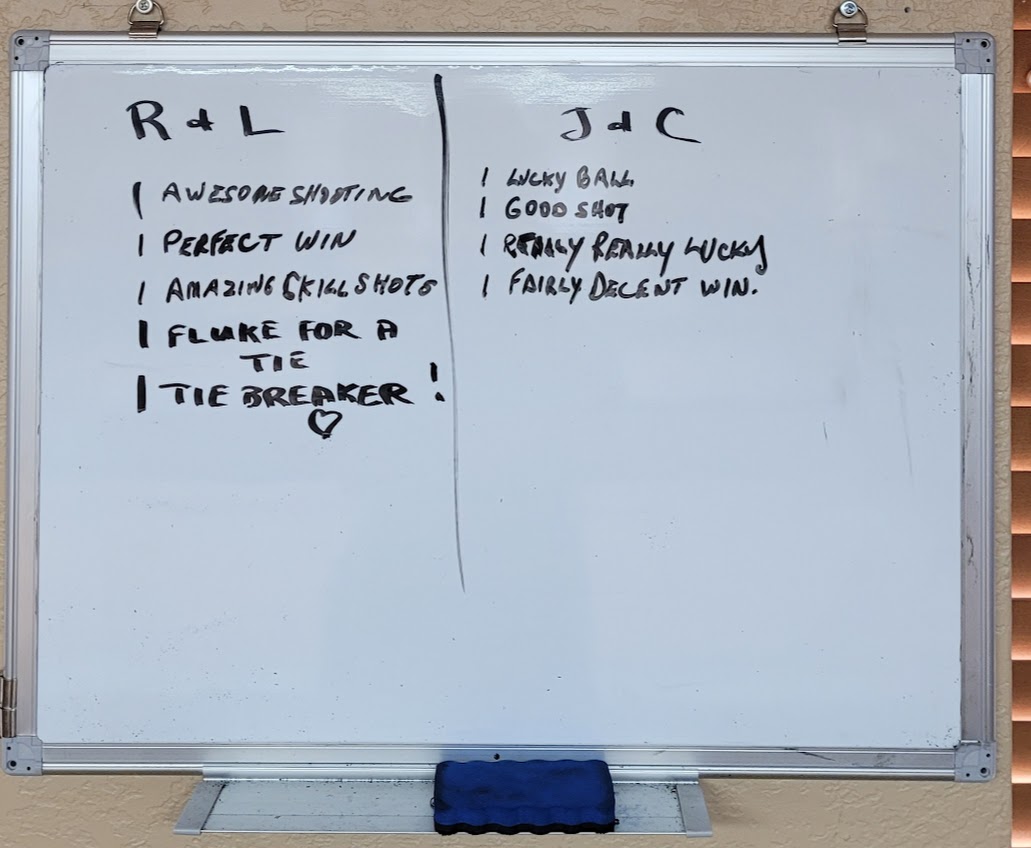 R & L
| AWESOME SHOOTING
| PERFECT WIN
| AMAZING SKILL SHOTS
| FLUKE FOR A
TIE
| TIE BREAKER !
♡
J & C
| LUCKY BALL
| GOOD SHOT
| REALLY REALLY LUCKY
| FAIRLY DECENT WIN.